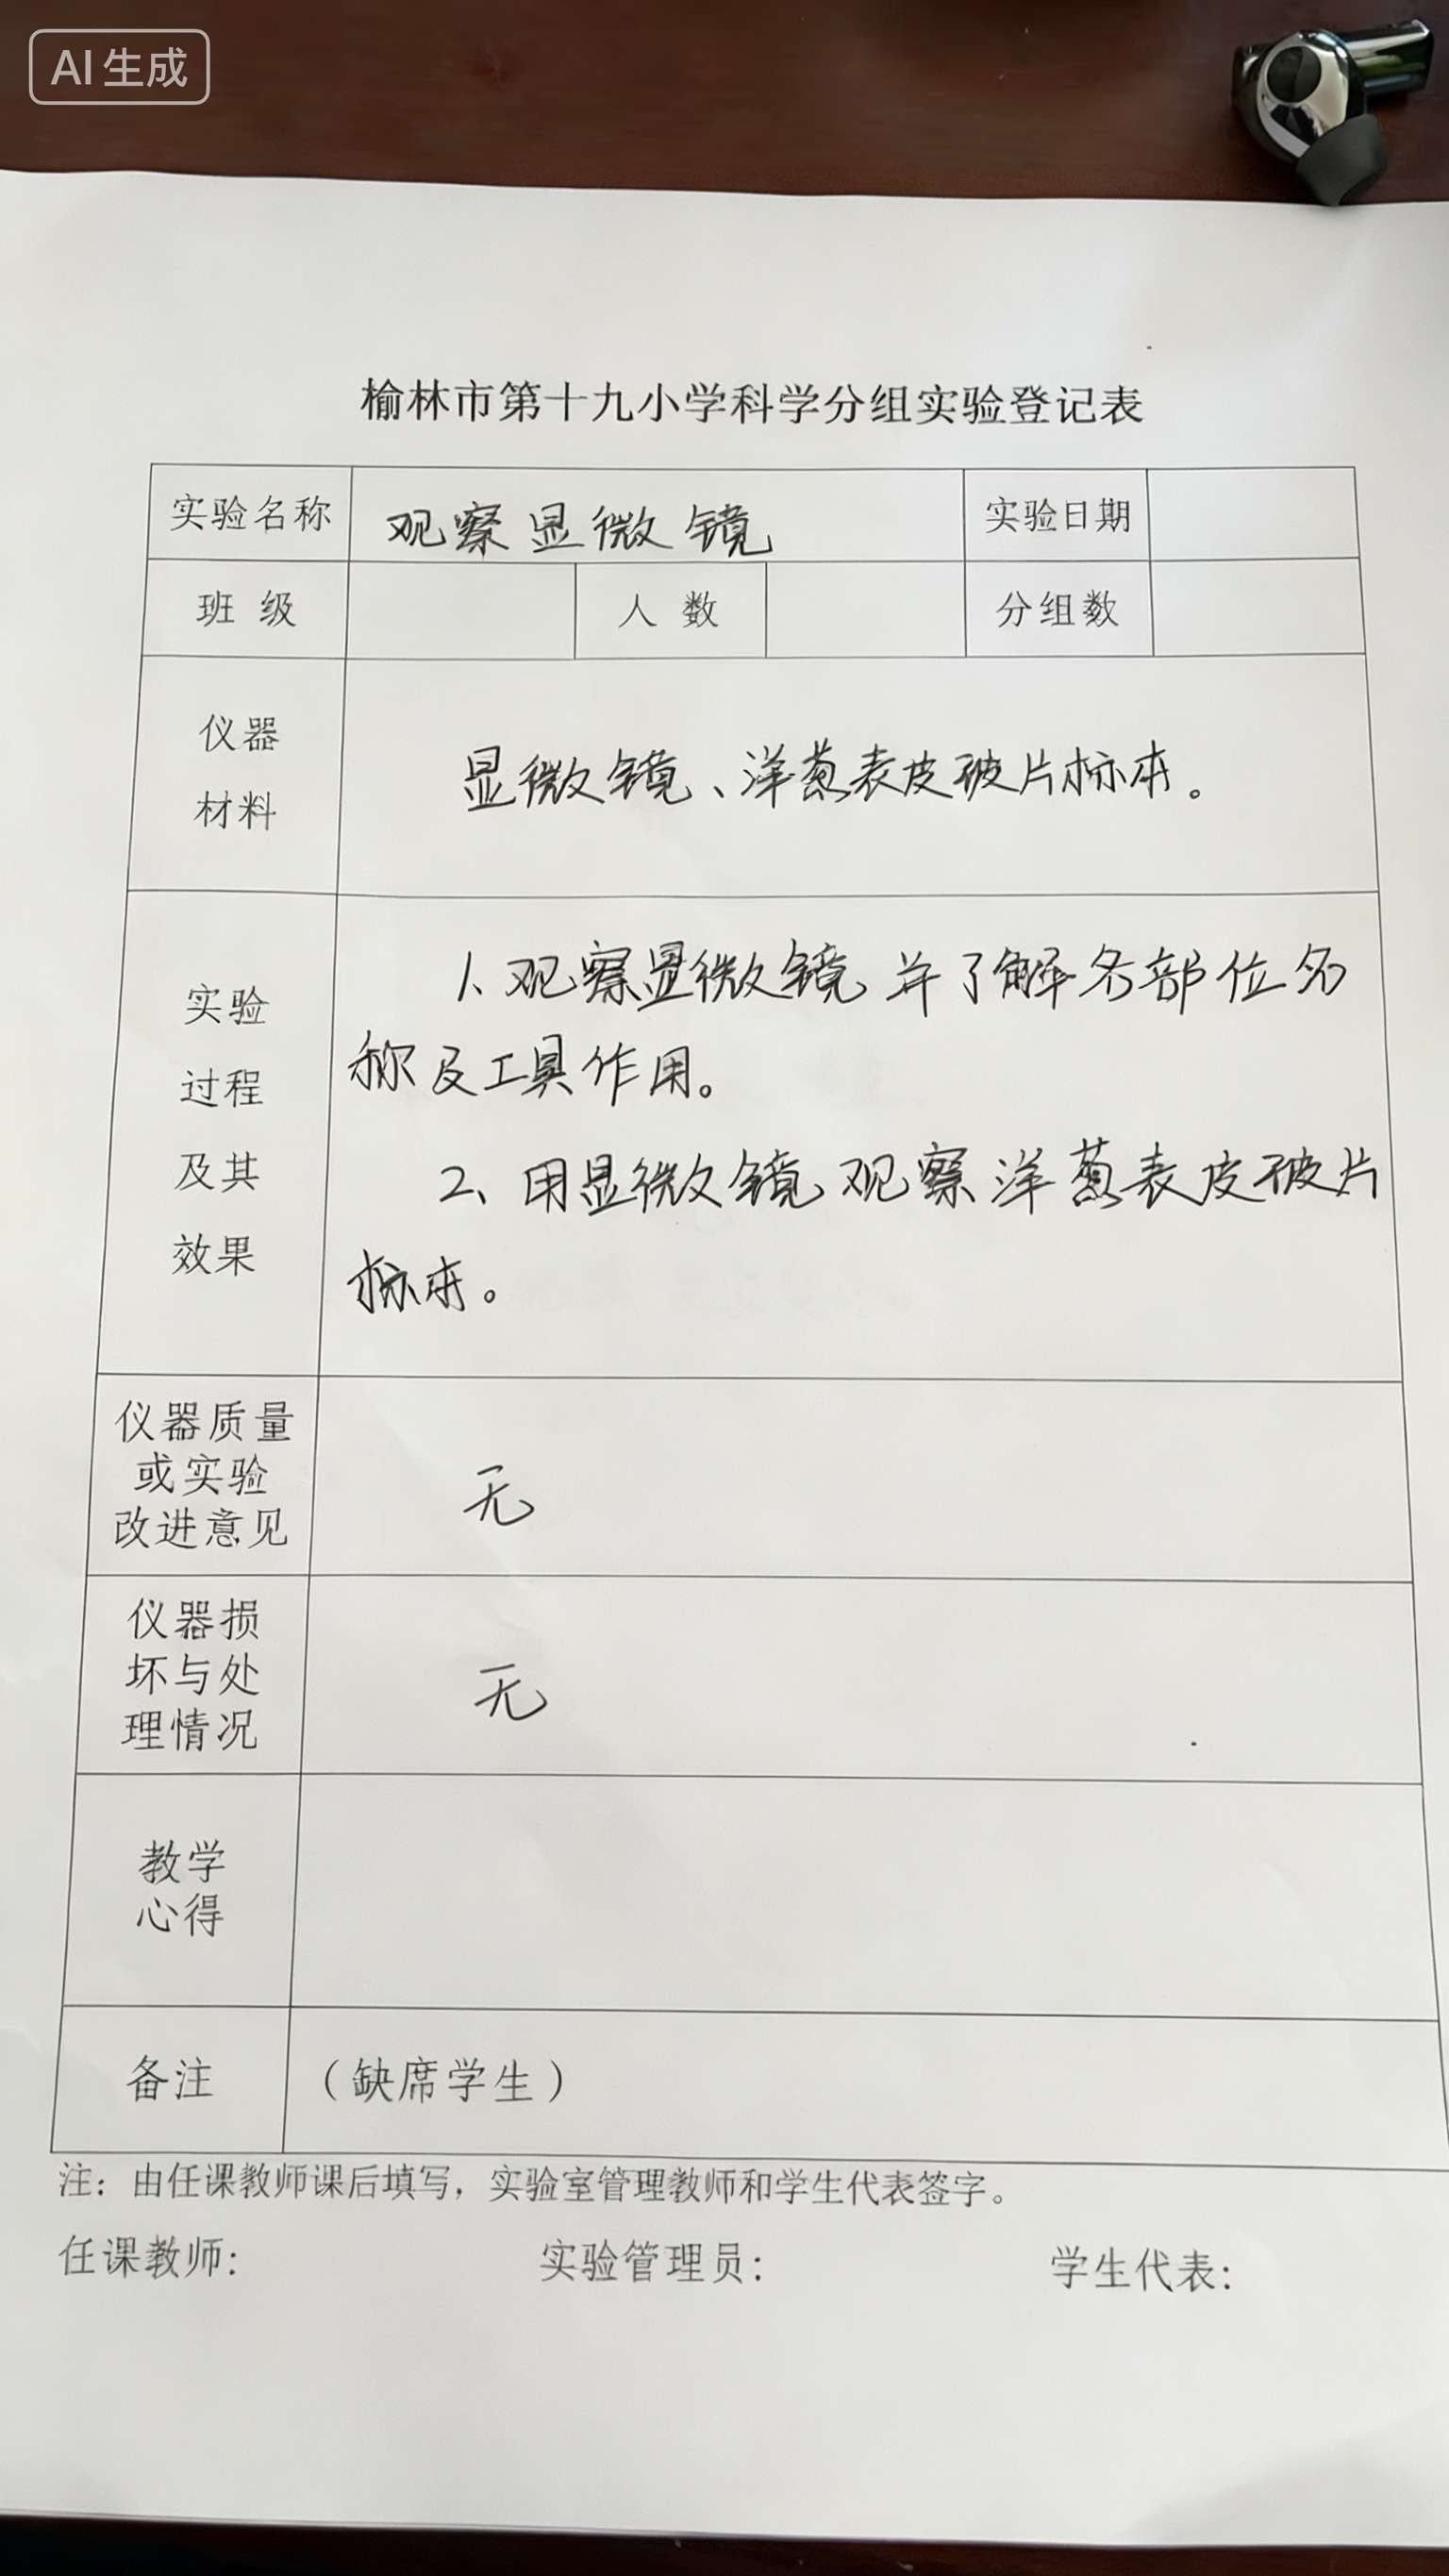 AI 生成
榆林市第十九小学科学分组实验登记表
实验名称 观察显微镜 实验日期
班 级 人 数 分组数
仪器
材料
显微镜、洋葱表皮玻片标本。
实验
过程
及其
效果
1、观察显微镜并了解各部位名
称及工具作用。
2、用显微镜观察洋葱表皮玻片
标本。
仪器质量
或实验
改进意见
无
仪器损
坏与处
理情况
无
教学
心得
备注 （缺席学生）
注：由任课教师课后填写，实验室管理教师和学生代表签字。
任课教师： 实验管理员： 学生代表：